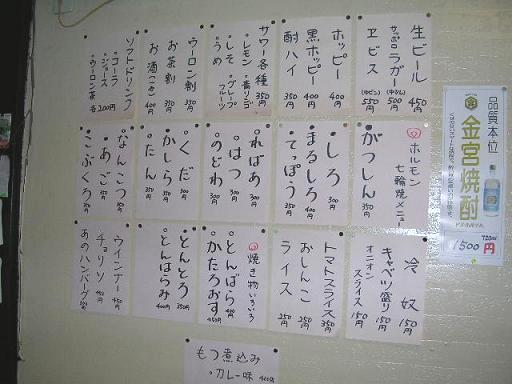 生ビール 450
サッポロラガー (中ビン) 500
ヱビス (中ビン) 550
ホッピー 400
黒ホッピー 400
酎ハイ 350
サワー各種 350円
・レモン ・青リンゴ
・しそ ・グレープフルーツ
・うめ
ウーロン割 350
お茶割 350
お酒 400
ソフトドリンク
・コーラ
・ジュース
・ウーロン茶
各200円
ホルモン
七輪焼メニュー
がつしん 350
しろ 300
まるしろ 400
てっぽう 250
ればあ 300
はつ 300
のどわ 300
くだ 300
かしら 350
たん 350
なんこつ
あご 350
こぶくろ 350
冷奴 150円
キャベツ盛り 150円
オニオンスライス 150円
トマトスライス 350
おしんこ 250
ライス 250
焼き物いろいろ
とんばら 400
かたろおす 450円
とんとろ 350
とんはらみ 400円
ウインナー 450
チョリソ 450円
あのハンバーグ
もつ煮込み
・カレー味 400円
品質本位
金宮焼酎
KINMIYA
720ml
1500円